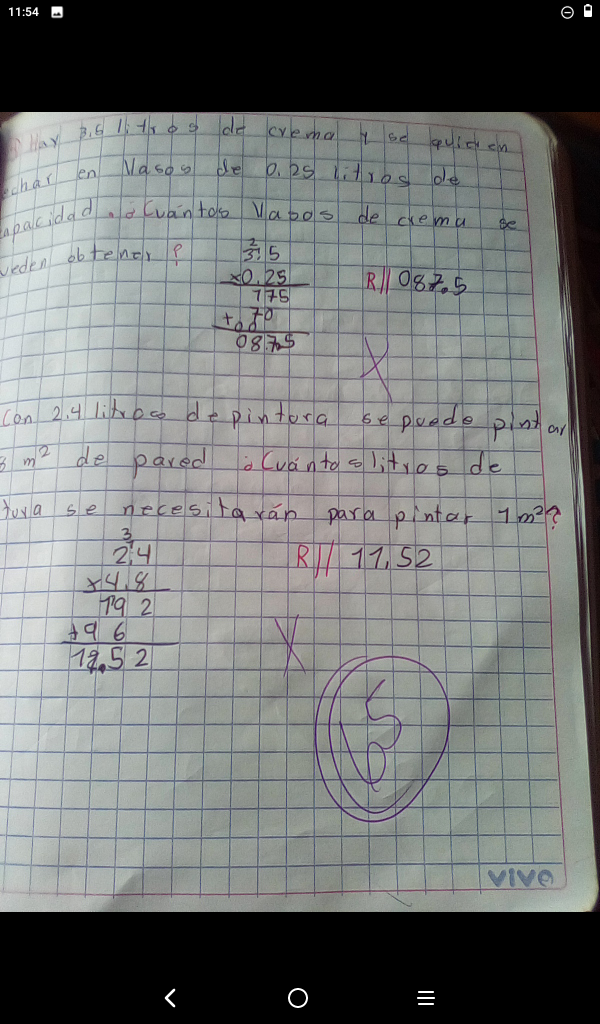 11:54
Hay 3.5 litros de crema y se quieren
echar en Vasos de 0.25 litros de
capacidad. ¿Cuántos Vasos de crema se
ueden obtener?
2
3.5
x0.25
R// 087.5
175
+ 70
00
087.5
X
Con 2.4 litros de pintura se puede pintar
8 m² de pared ¿Cuántos litros de
tura se necesitarán para pintar 1m²?
3
2.4
R// 11.52
x4.8
192
+9 6
11.52
X
vivo